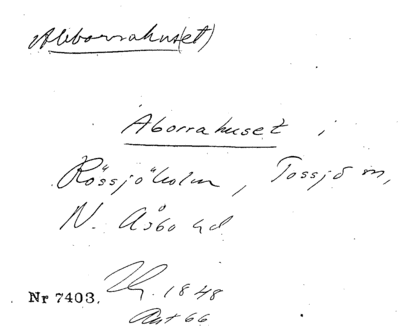 Abborrahus(et)
Aborrahuset i
Rössjöholm, Tossjö sn,
N. Åsbo hd
1848
Nr 7403.
Ant 66